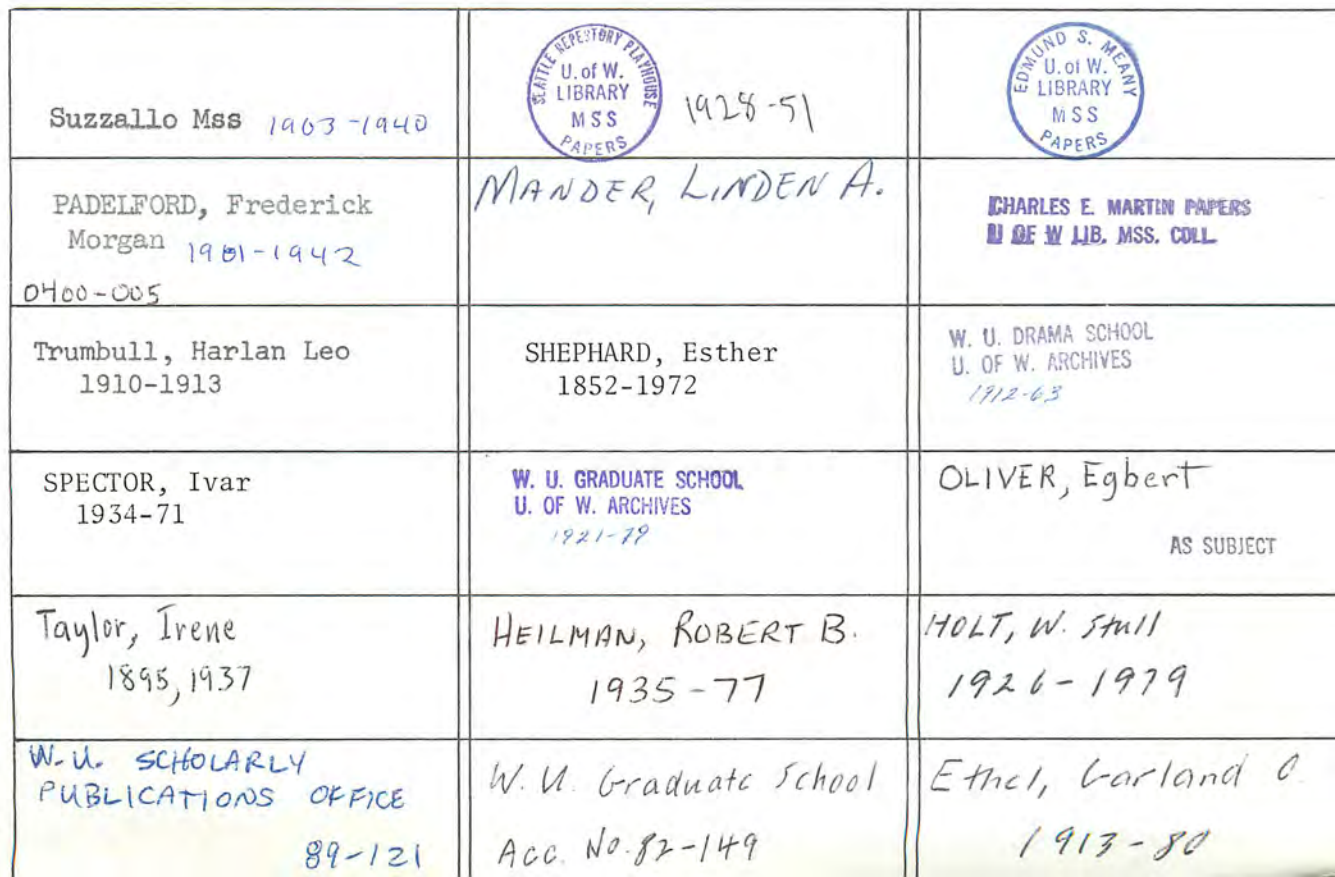 Suzzallo Mss 1903-1940
SEATTLE REPERTORY PLAYHOUSE
U. of W.
LIBRARY
MSS
PAPERS
1928-51
EDMUND S. MEANY
U. of W.
LIBRARY
MSS
PAPERS
PADELFORD, Frederick
Morgan 1901-1942
0400-005
MANDER, LINDEN A.
CHARLES E. MARTIN PAPERS
U OF W LIB. MSS. COLL.
Trumbull, Harlan Leo
1910-1913
SHEPHARD, Esther
1852-1972
W. U. DRAMA SCHOOL
U. OF W. ARCHIVES
1912-63
SPECTOR, Ivar
1934-71
W. U. GRADUATE SCHOOL
U. OF W. ARCHIVES
1921-79
OLIVER, Egbert
AS SUBJECT
Taylor, Irene
1895, 1937
HEILMAN, ROBERT B.
1935-77
HOLT, W. Stull
1926-1979
W.U. SCHOLARLY
PUBLICATIONS OFFICE
89-121
W. U. Graduate School
Acc. No. 82-149
Ethel, Garland O.
1913-80